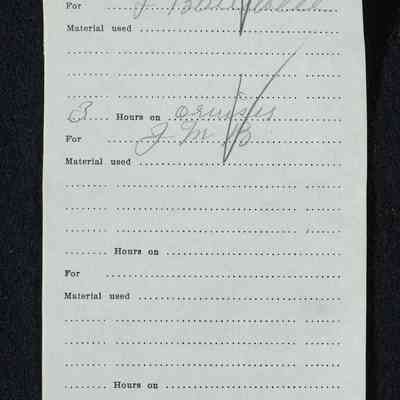 For J
Material used
3 Hours on
For J M B
Material used
Hours on
For
Material used
Hours on